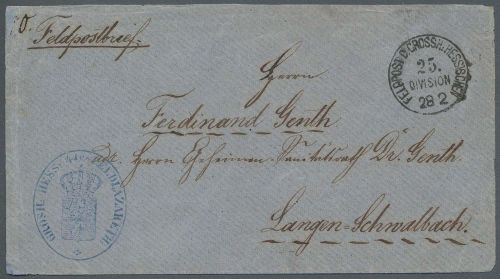 Feldpostbrief.
FELDPOST D. GROSSH. HESSISCHEN
25.
DIVISION
28 2
Herrn
Ferdinand Genth
adr. Herrn Geheimen-Sanitätsrath Dr. Genth.
Langen-Schwalbach.
GROSH. HESS. FELDLAZARETH